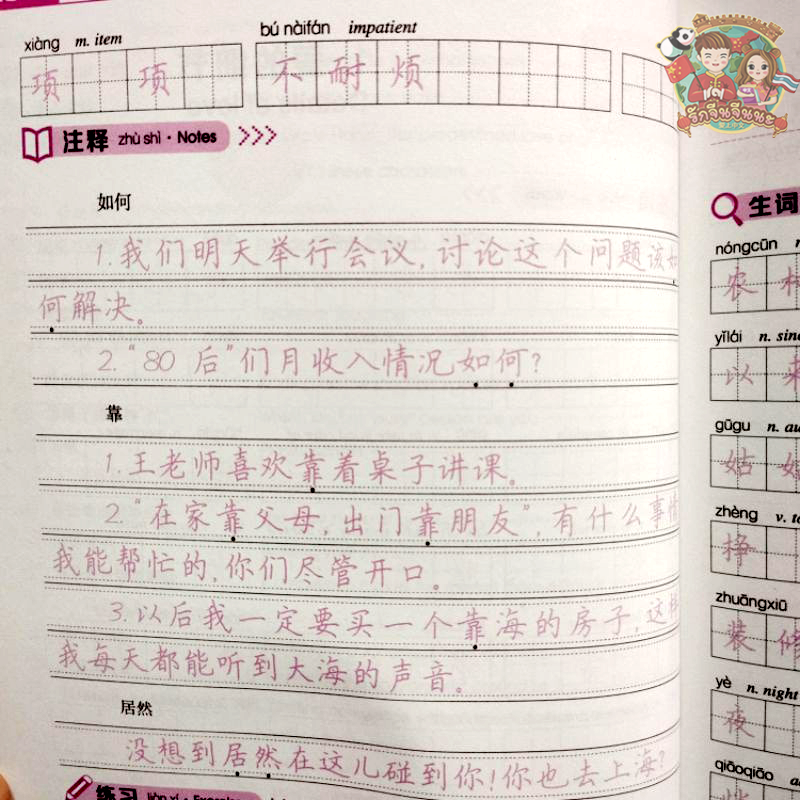 xiàng m. item
bú nàifán impatient
项 项
不耐烦
注释 zhù shì · Notes
如何
1.我们明天举行会议,讨论这个问题该如
何解决。
2.“80后”们月收入情况如何?
靠
1.王老师喜欢靠着桌子讲课。
2.“在家靠父母,出门靠朋友”,有什么事情
我能帮忙的,你们尽管开口。
3.以后我一定要买一个靠海的房子,这样
我每天都能听到大海的声音。
居然
没想到居然在这儿碰到你!你也去上海?
练习
รักจีนจีนนะ
生词
nóngcūn
农村
yǐlái n.
以来
gūgu n.
姑姑
zhèng v.
挣
zhuāngxiū
装修
yè n. night
夜
qiāoqiāo